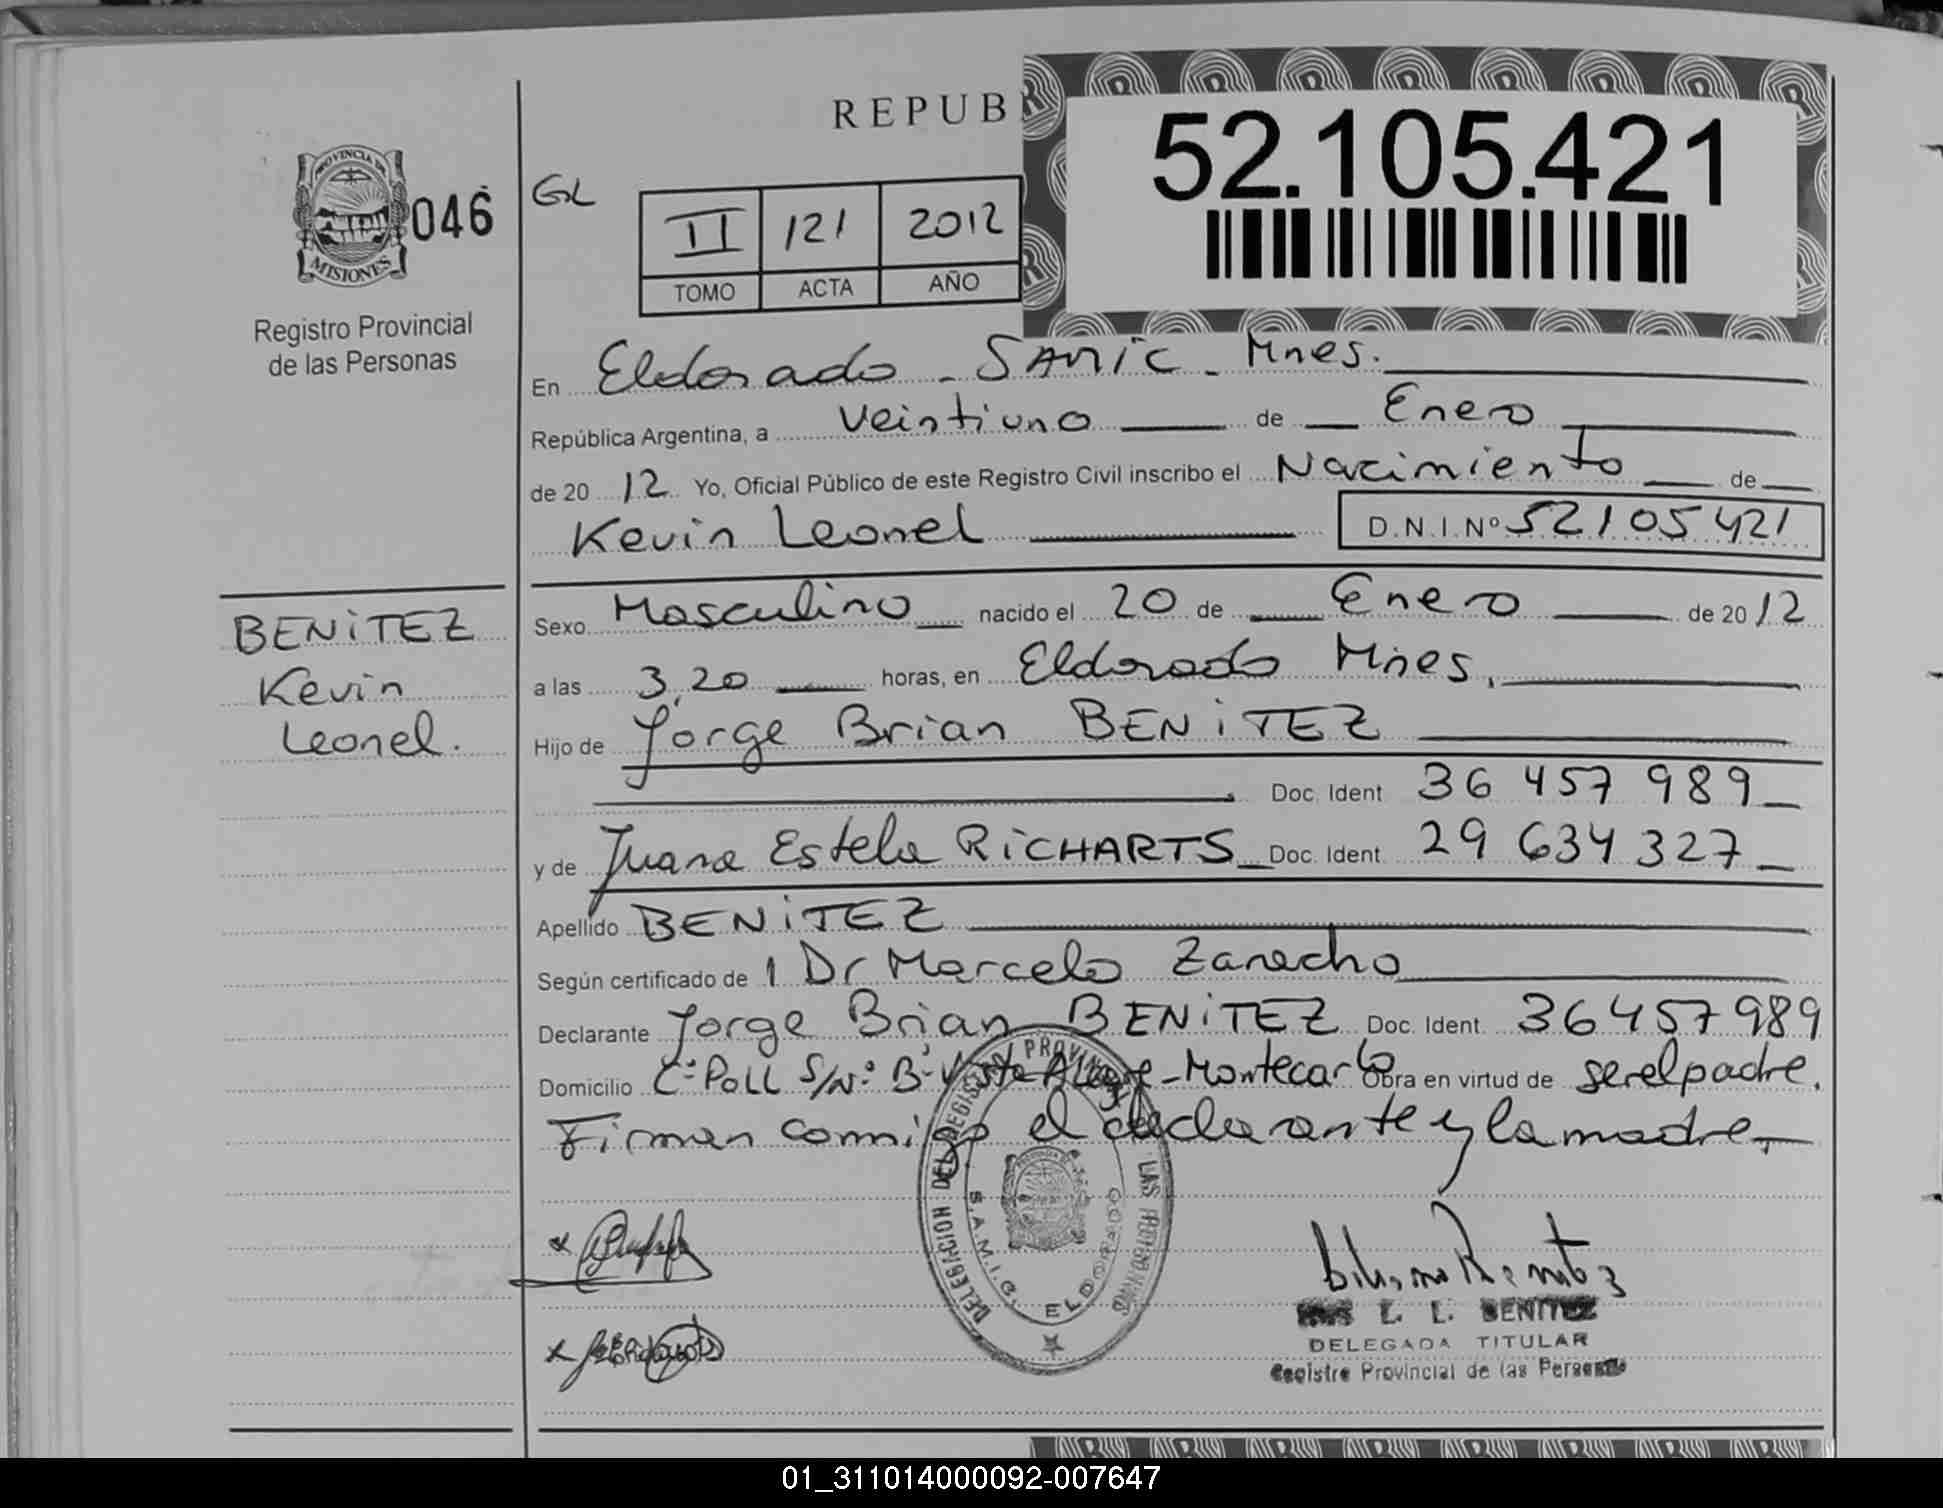 REPUB
52.105.421
PROVINCIA DE
MISIONES
046
GL
II 121 2012
TOMO ACTA AÑO
Registro Provincial
de las Personas
En Eldorado - SAMIC - Mnes.
República Argentina, a Veintiuno de Enero
de 20 12 Yo, Oficial Público de este Registro Civil inscribo el Nacimiento de
Kevin Leonel D.N.I.Nº 52105421
BENITEZ
Kevin
Leonel.
Sexo Masculino nacido el 20 de Enero de 20 12
a las 3,20 horas, en Eldorado Mnes,
Hijo de Jorge Brian BENITEZ
Doc. Ident 36 457 989
y de Juana Estela RICHARTS Doc. Ident 29 634 327
Apellido BENITEZ
Según certificado de Dr Marcelo
Declarante Jorge Brian BENITEZ Doc. Ident. 36457989
Domicilio C: POLL S/Nº Bº Vista Alegre - Montecarlo Obra en virtud de ser el padre.
Firman conmigo el declarante y la madre.
DELEGACION DEL REGISTRO PROVINCIAL LAS
S.A.M.I.C. ELDORADO
L. L. BENITEZ
DELEGADA TITULAR
Registro Provincial de las Personas
01_311014000092-007647